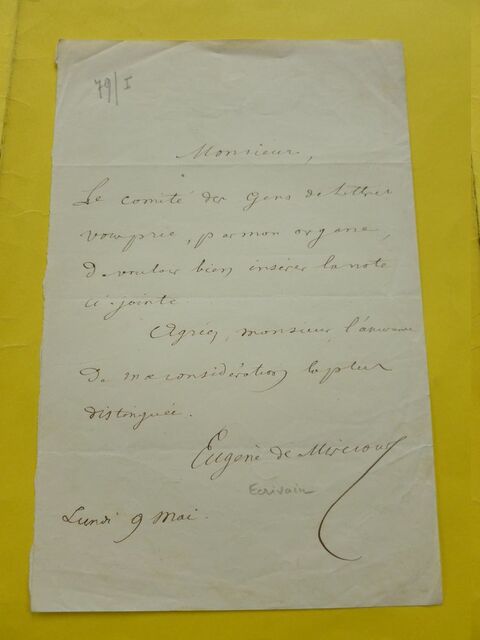 79/I
Monsieur,
Le comité des Gens de Lettres
vous prie, par mon organe,
de vouloir bien insérer la note
ci-jointe.
Agréez, monsieur, l'assurance
De ma considération la plus
distinguée.
Eugène de Mirecourt
Ecrivain
Lundi 9 Mai.